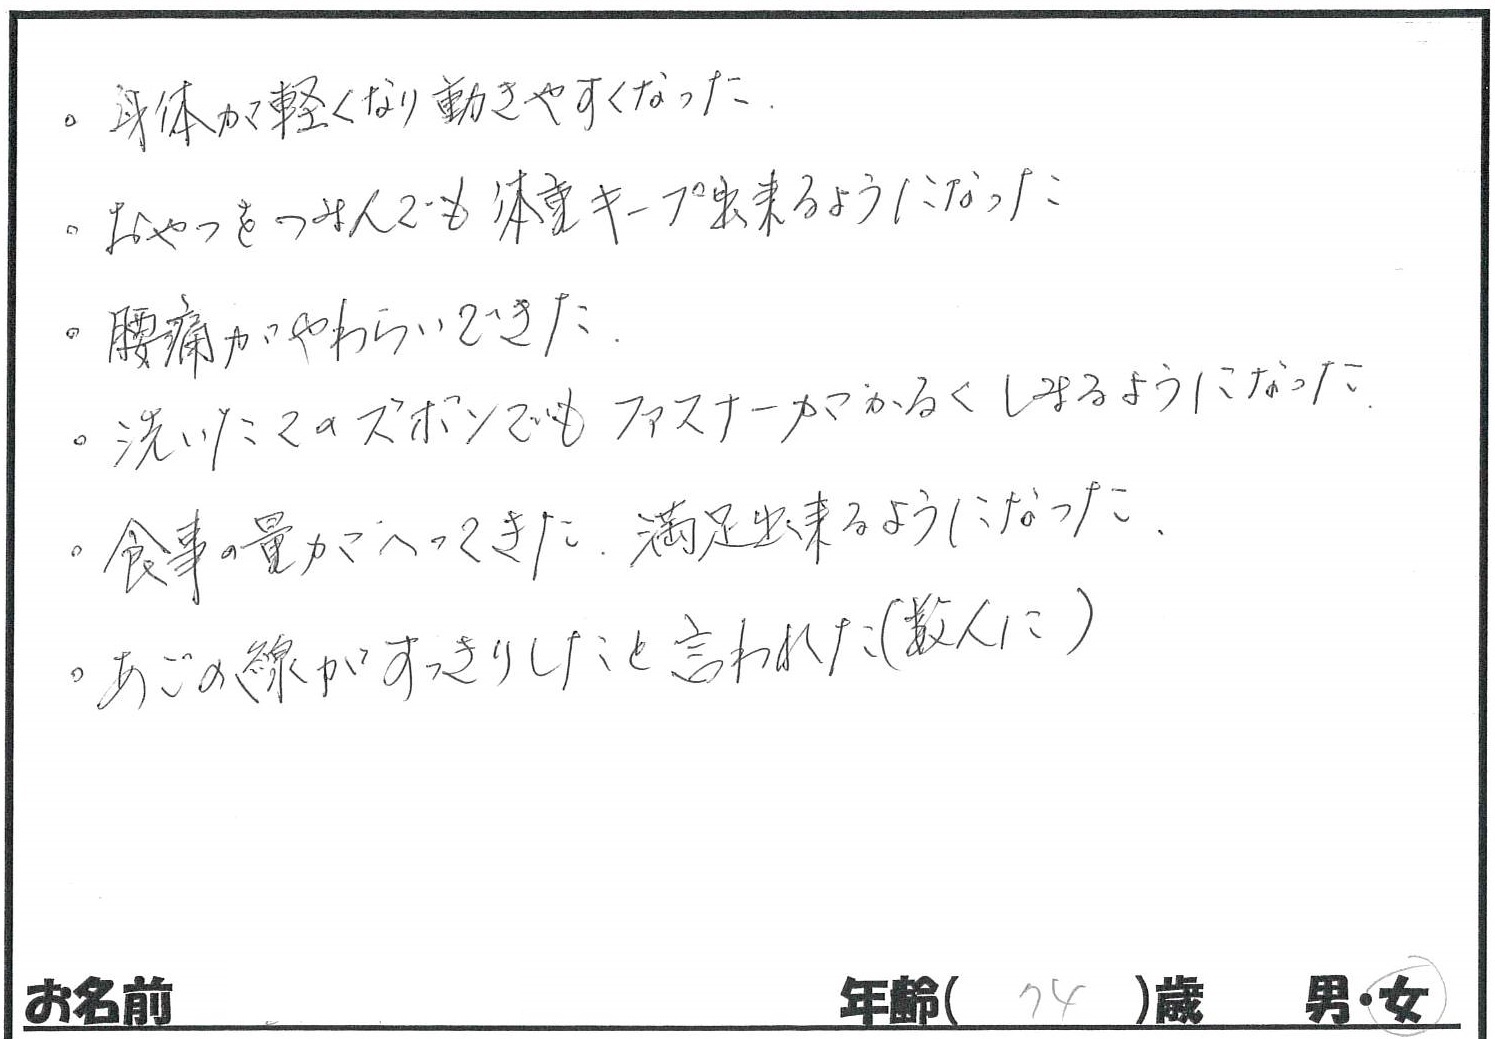 。身体が軽くなり動きやすくなった.
。おやつをつまんでも体重キープ出来るようになった
。腰痛がやわらいできた.
。洗いたてのズボンでもファスナーがかるくしまるようになった.
。食事の量がへってきた.満足出来るようになった、
。あごの線がすっきりしたと言われた(数人に)
お名前 年齢( 74 )歳 男・女